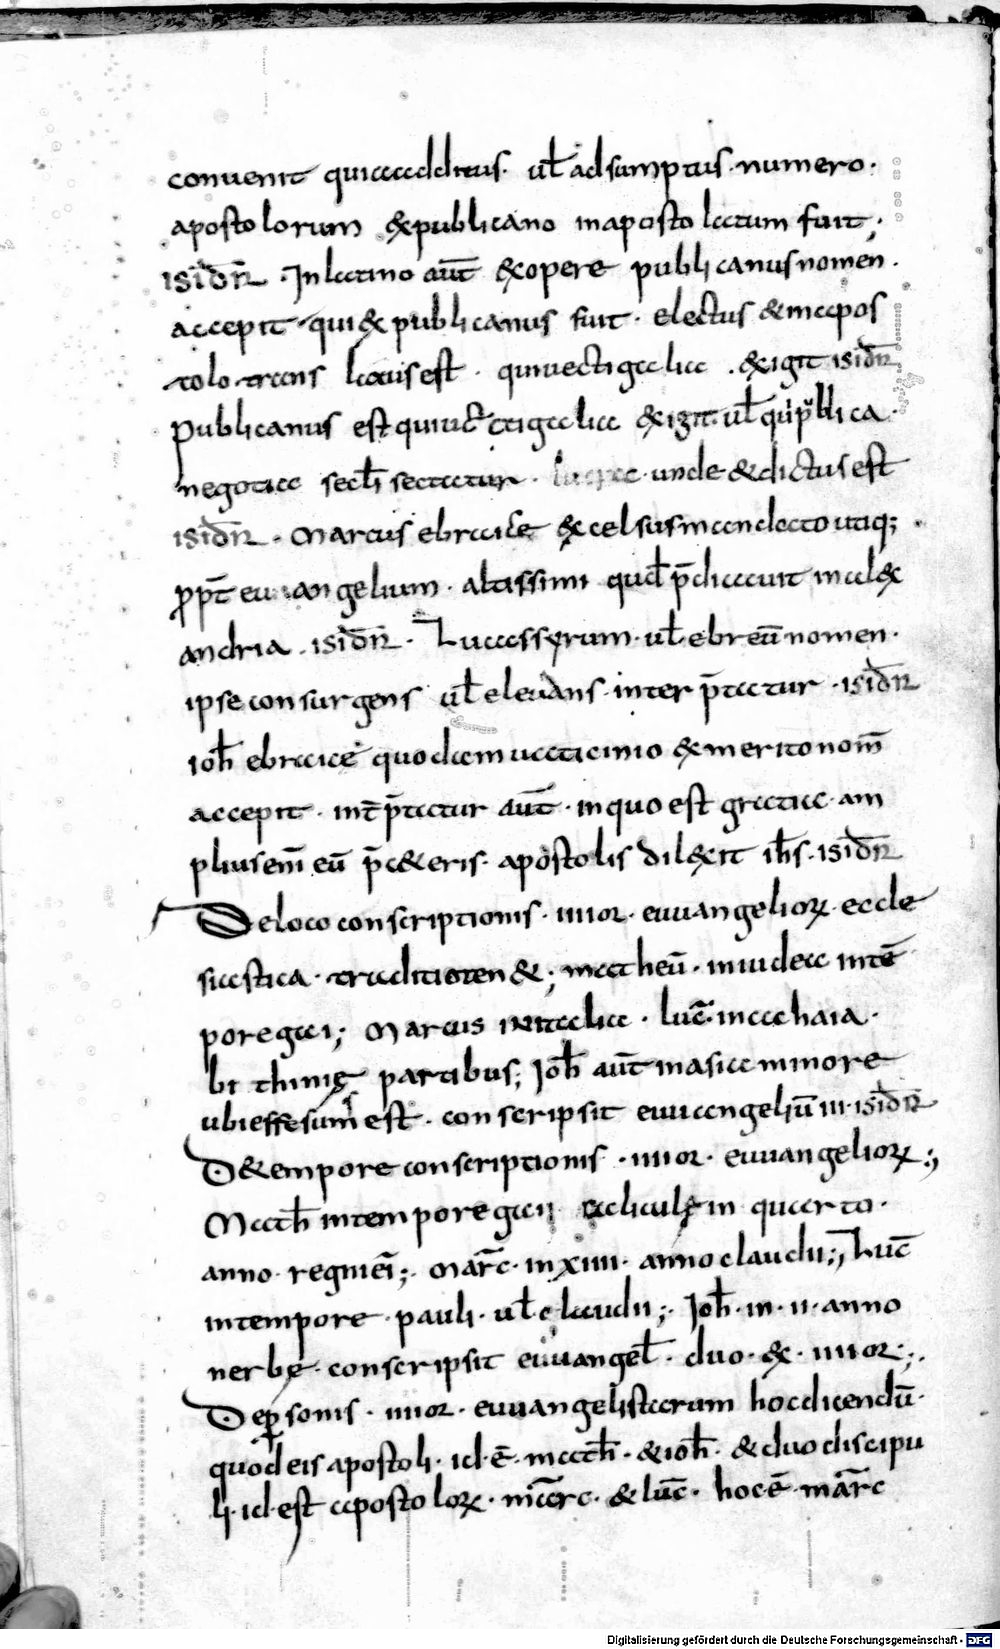 conuenit quiaadditus · ul̄ adsumptus · numero ·
apostolorum expublicano inapostolatum fuit ;
isidr̄ · Inlatino aūt exopere publicanusnomen ·
accepit · qui expublicanus fuit · electus &inapos
tolo · trans latusest · quiuectigalia · exigit isidr̄
publicanus est quiuectigalia exigit · ul̄ qui publica ·
negotia secl̄i sectatur · lucra · unde &dictus est
isidr̄ · Marcus ebraice excelsusmandato utiq; ·
ꝓpt̄ euuangelium · altissimi qud̄ p̄dicauit inalex
andria · isidr̄ · Lucasserum · ul̄ · ebreū nomen ·
ipse consurgens ul̄ eleuans · inter p̄tatur · isidr̄
ioh̄ ebraice quodam uaticinio exmerito nom̄
accepit · int̄ p̄tatur aūt · inquo est gratia · am
pliusem̄ eū p̄c&eris · apostolis dilexit ih̄s · isidr̄
Deloco conscriptionis · iiiior · euuangelioꝝ · eccle
siastica · traditioten& ; matheū · iniudea intē
poregai ; Marcus initalia · luc̄ · inachaia ·
bithinię partibus ; Ioh̄ aūt inasia minore
ubieffesum est · conscripsit euuangeliū iii · isidr̄
D&empore conscriptionis · iiiior · euuangelioꝝ ;
Math̄ intempore gaii galiculę in quarto ·
anno · regniei ; · Marc̄ · inxiiii · anno claudii ; Luc̄
intempore · pauli · ul̄ claudii ; · Ioh̄ · in · ii · anno
nerbę · conscripsit euuangel̄ · duo · ex · iiiior ; ·
Deꝑsonis · iiiior · euuangelistarum hocdicendū ·
quod eis apostoli · id · ē · math̄ · &ioh̄ · &duo discipu
li · id · est apostoloꝝ · marc̄ · &luc̄ · hoc ē · marc̄
Digitalisierung gefördert durch die Deutsche Forschungsgemeinschaft - DFG